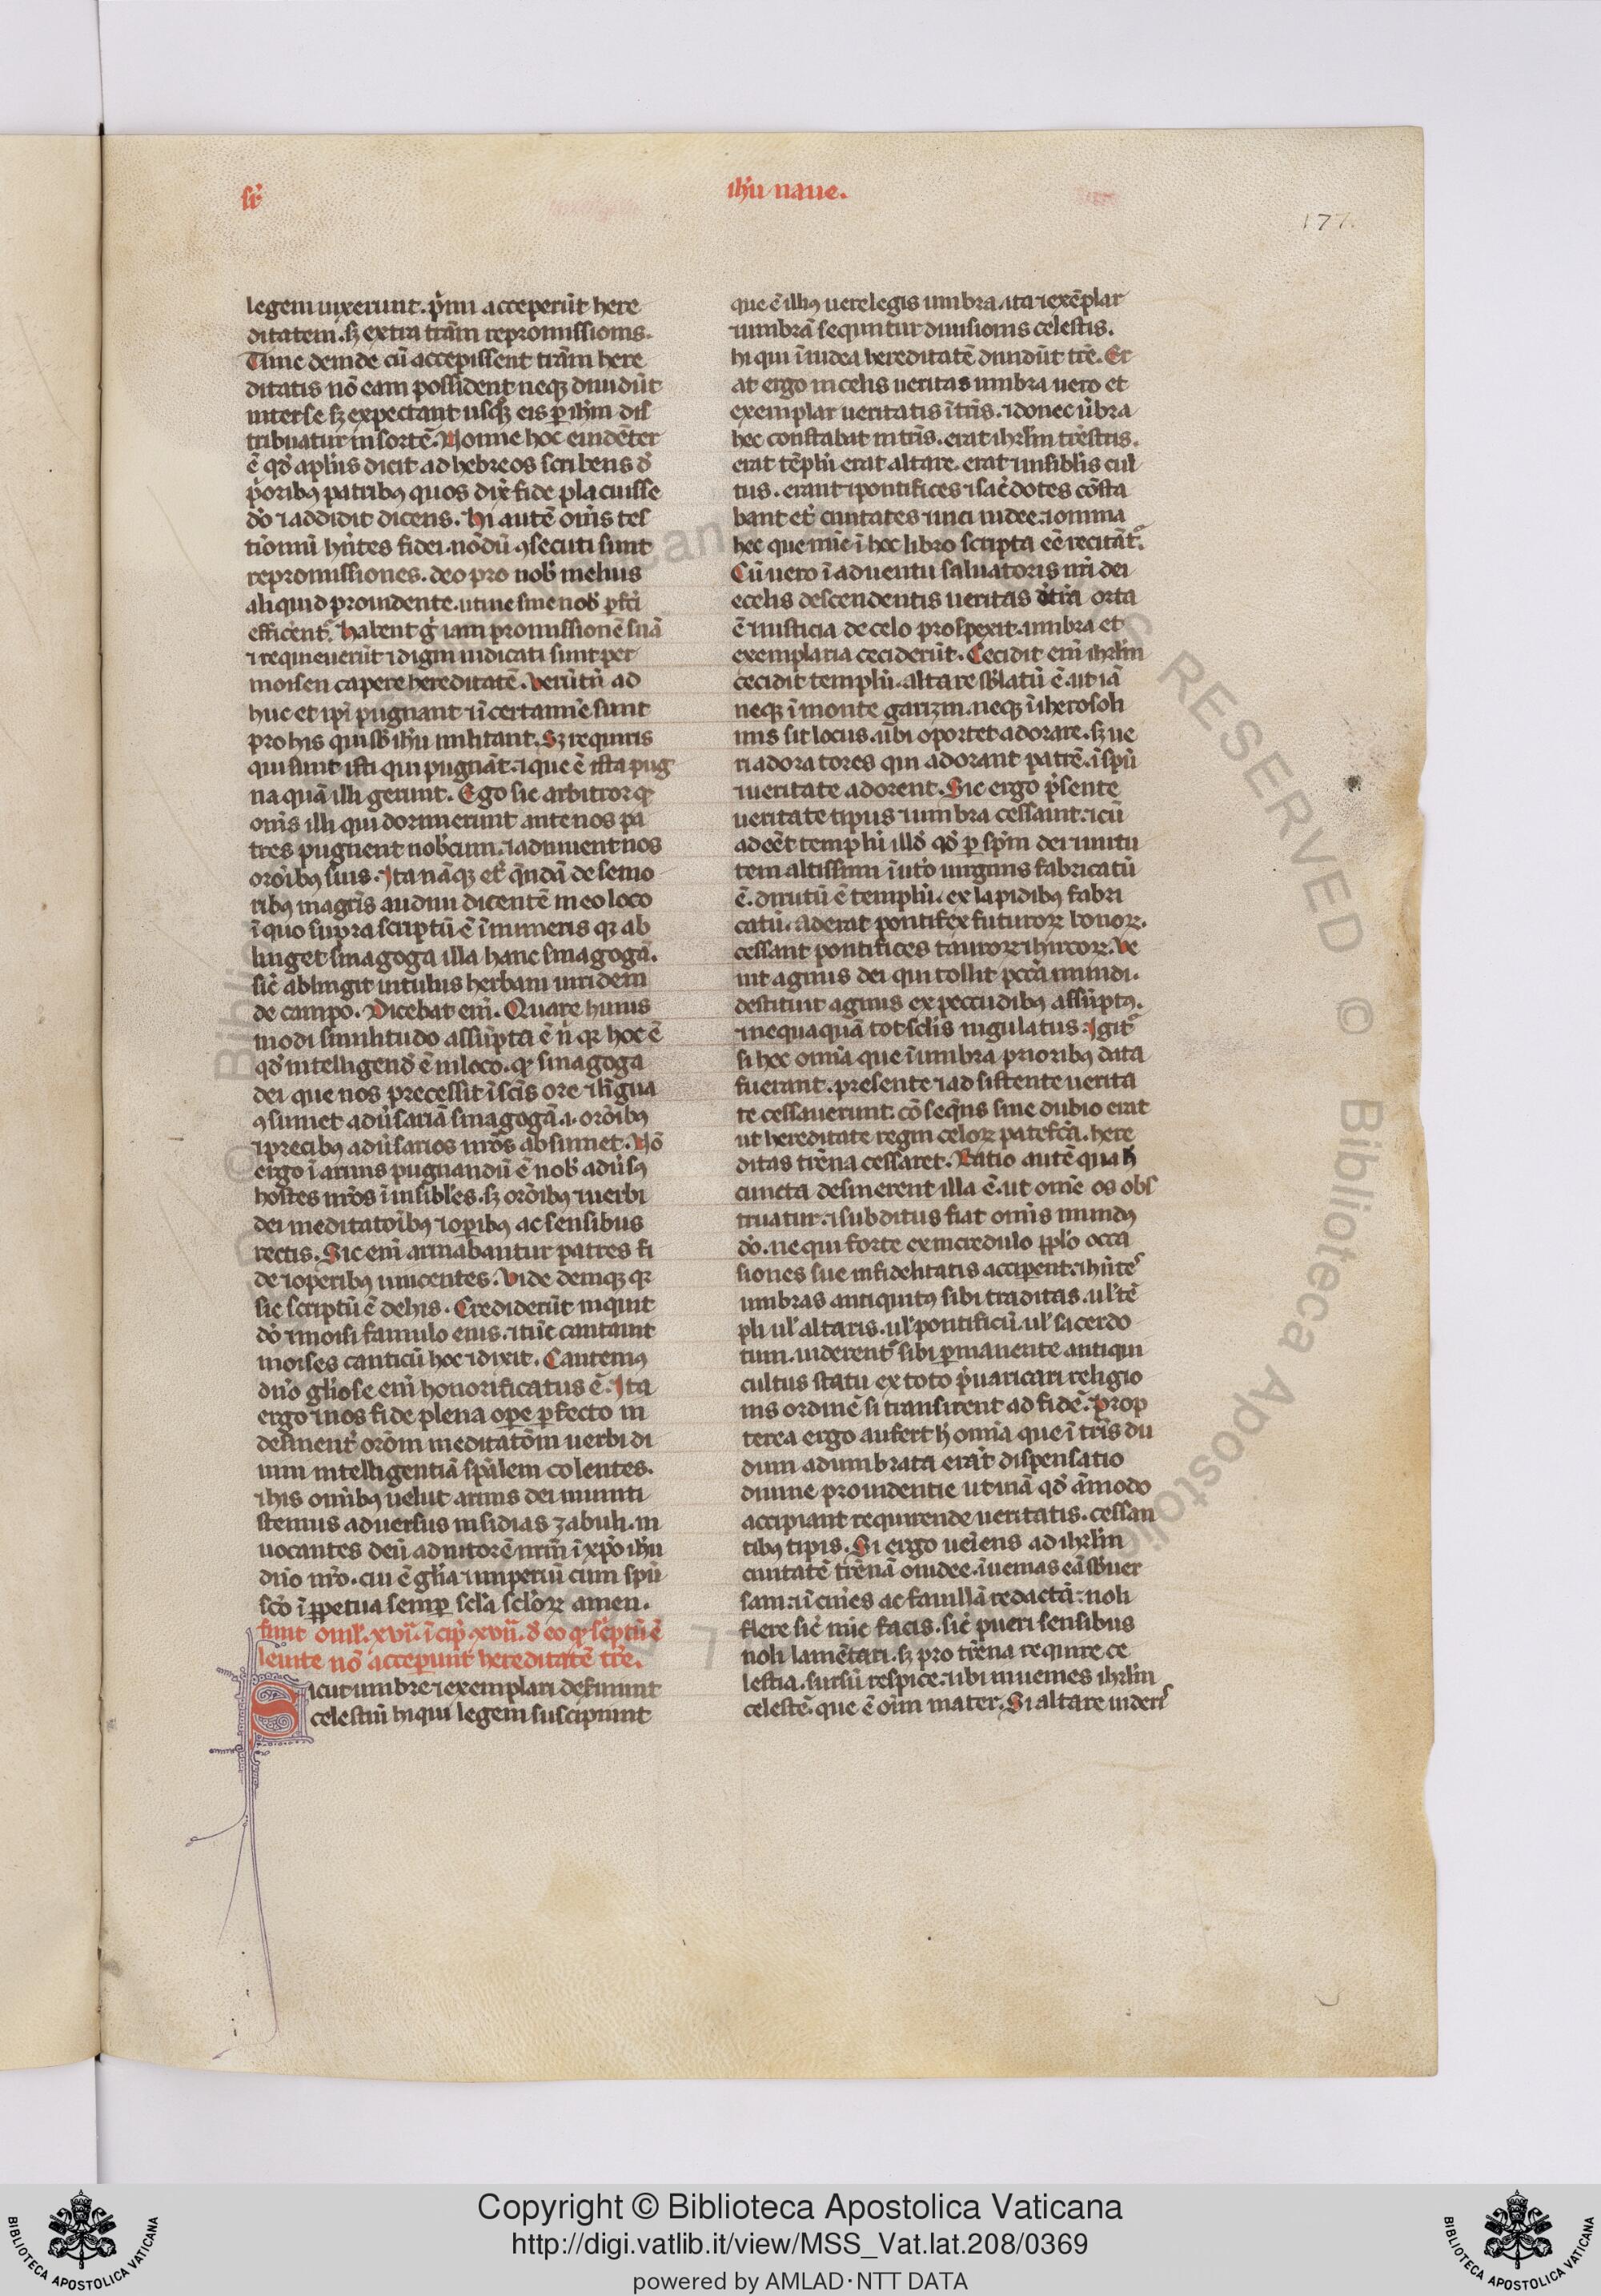 sr̄
ih̄u naue.
177.
legem uixerunt. p̄mi acceperūt here
ditatem. sꝫ extra trām repromissionis.
Tunc deinde cū accepissent trām here
ditatis nō eam possident neqꝫ diuidūt
inter se sꝫ expectant usqꝫ eis ꝑ ih̄m dis
tribuatur in sortē. Nonne hoc euidēter
ē qd̄ apl̄us dicit ad hebreos scribens d̄
p̄oribꝰ patribꝰ quos dix̄ fide placuisse
dō ⁊ addidit dicens. Hi autē om̄s tes
tiōnium hn̄tes fidei. nōdū ꝯsecuti sunt
repromissiones. deo pro nob̄ melius
aliquid prouidente. ut ne sine nob̄ ꝑfc̄i
efficērent᷑. Habent ḡ iam promissionē suā
⁊ requieuerūt ⁊ digni iudicati sunt per
moisen capere hereditatē. Verūtn̄ ad
huc et ip̄i pugnant ⁊ ī certamīe sunt
pro his qui sb̄ ih̄u militant. Sꝫ requiris
qui sunt isti qui pugnāt. ⁊ que ē ista pug
na quā illi gerunt. Ego sic arbitror qꝫ
om̄s illi qui dormierunt ante nos pa
tres pugnent nob̄cum. ⁊ adiuuent nos
orōibꝰ suis. Ita nāqꝫ et̄ q̄ndā de senio
ribꝰ magr̄is audiui dicentē in eo loco
ī quo supra scriptū ē ī numeris qꝫ ab
linget sinagoga illa hanc sinagogā.
sic̄ ablingit uitulus herbam uiridem
de campo. Dicebat em̄. Quare huius
modi similitudo assūpta ē n̄ qꝫ hoc ē
qd̄ intelligend̄ ē in loco. qꝫ sinagoga
dei que nos precessit ī sc̄is ore ⁊ līgua
ꝯsumet adūsariā sinagogā .i. orōibꝰ
⁊ precibꝰ adūsarios nr̄os absumet. Nō
ergo ī armis pugnandū ē nob̄ adūsꝰ
hostes nr̄os ī uisibl̄es. sꝫ orōibꝰ ⁊ uerbi
dei meditatōibꝰ ⁊ oꝑibꝰ ac sensibus
rectis. Sic em̄ armabantur patres fi
de ⁊ operibꝰ uincentes. Vide deniqꝫ qꝫ
sic scriptū ē de his. Crediderūt inquit
dō ⁊ moisi famulo eius. ⁊ tūc cantauit
moises canticū hoc ⁊ dixit. Cantemꝰ
dn̄o gl̄iose em̄ honorificatus ē. Ita
ergo ⁊ nos fide plena oꝑe ꝑfecto in
desinent̄ orōm meditatōm uerbi di
uini intelligentiā sp̄alem colentes.
⁊ his om̄ibꝰ uelut armis dei muniti
stemus aduersus insidias zabuli. in
uocantes deū adiutorē nr̄m ī xp̄o ih̄u
dn̄o nr̄o. cui ē gl̄ia ⁊ imperiū cum sp̄u
sc̄o ī ꝑpetua semꝑ scl̄a scl̄oꝝ amen.
finit omīl̄. xvi. īcip̄ .xvii. d̄ eo qꝫ sc̄ptū ē
leuite nō acceperunt hereditatē tr̄e.
Sicut umbre ⁊ exemplari deseruiunt
celestiū hi qui legem suscipiunt
que ē illiꝰ uere legis umbra. ita ⁊ exēplar
⁊ umbrā sequntur diuisionis celestis.
hi qui ī iudea hereditatē diuidūt tr̄e. Er
at ergo in celis ueritas umbra uero et
exemplar ueritatis ī tr̄is. ⁊ donec ūbra
hec constabat in tr̄is. erat ihrl̄m tr̄estris.
erat tēplū erat altare. erat ⁊ uisiblis cul
tus. erant ⁊ pontifices ⁊ sac̄dotes cōsta
bant et̄ ciuitates ⁊ uici iudee. ⁊ omnia
hec que nūc ī hoc libro scripta eē recitāt᷑.
Cū uero ī aduentu saluatoris nr̄i dei
e celis descendentis ueritas d̄ tr̄a orta
ē ⁊ iusticia de celo prospexit. umbra et
exemplaria ceciderūt. Cecidit em̄ ihrl̄m
cecidit templū. altare sb̄latū ē. ut iā
neqꝫ ī monte garizin. neqꝫ ī iherosoli
mis sit locus. ubi oportet adorare. sꝫ ue
ri adoratores qui adorant patrē. ī sp̄u
⁊ ueritate adorent. Sic ergo p̄sente
ueritate tipus ⁊ umbra cessauit. ⁊ cū
adeēt templū illd̄ qd̄ ꝑ sp̄m dei ⁊ uirtu
tem altissimi ī utō uirginis fabricatū
ē. dirutū ē templū. ex lapidibꝰ fabri
catū. Aderat pontifex futuroꝝ bonoꝝ.
cessant pontifices tauroꝝ ⁊ hircoꝝ. Ve
nit agnus dei qui tollit pcc̄a mundi.
destituit agnus ex peccudibꝰ assūptꝰ.
⁊ nequaquā tot scl̄is iugulatus. Igit᷑
si hec omīa que ī umbra prioribꝰ data
fuerant. presente ⁊ adsistente uerita
te cessauerunt. cōseq̄ns sine dubio erat
ut hereditate regni celoꝝ patefc̄a. here
ditas tr̄ena cessaret. Ratio autē qua h̄
cuncta desinerent illa ē. ut omē os obs
truatur. ⁊ subditus fiat om̄is mundꝰ
dō. ne qui forte ex incredulo ppl̄o occa
siones sue infidelitatis acciperent. ⁊ hn̄tes
umbras antiquitꝰ sibi traditas. ul̄ tē
pli ul̄ altaris. ul̄ pontificū. ul̄ sacerdo
tum. uiderent᷑ sibi ꝑmanente antiqui
cultus statu ex toto p̄uaricari religio
nis ordinē si transirent ad fidē. Prop
terea ergo aufert h̄ omīa que ī tr̄is du
dum adumbrata erāt dispensatio
diuine prouidentie ut uiā qd̄ āmodo
accipiant requirende ueritatis. cessan
tibꝰ tipis. Si ergo ueīens ad ihrl̄m
ciuitatē tr̄enā o iudee. īuenias eā sb̄uer
sam. ⁊ ī cīnes ac fauillā redactā. noli
flere sic̄ nūc facis. sic̄ pueri sensibus
noli lamētari. sꝫ pro tr̄ena require ce
lestia. sursū respice. ⁊ ubi inuenies ihrl̄m
celestē. que ē oīm mater. Si altare uideris
Copyright © Biblioteca Apostolica Vaticana
http://digi.vatlib.it/view/MSS_Vat.lat.208/0369
powered by AMLAD·NTT DATA